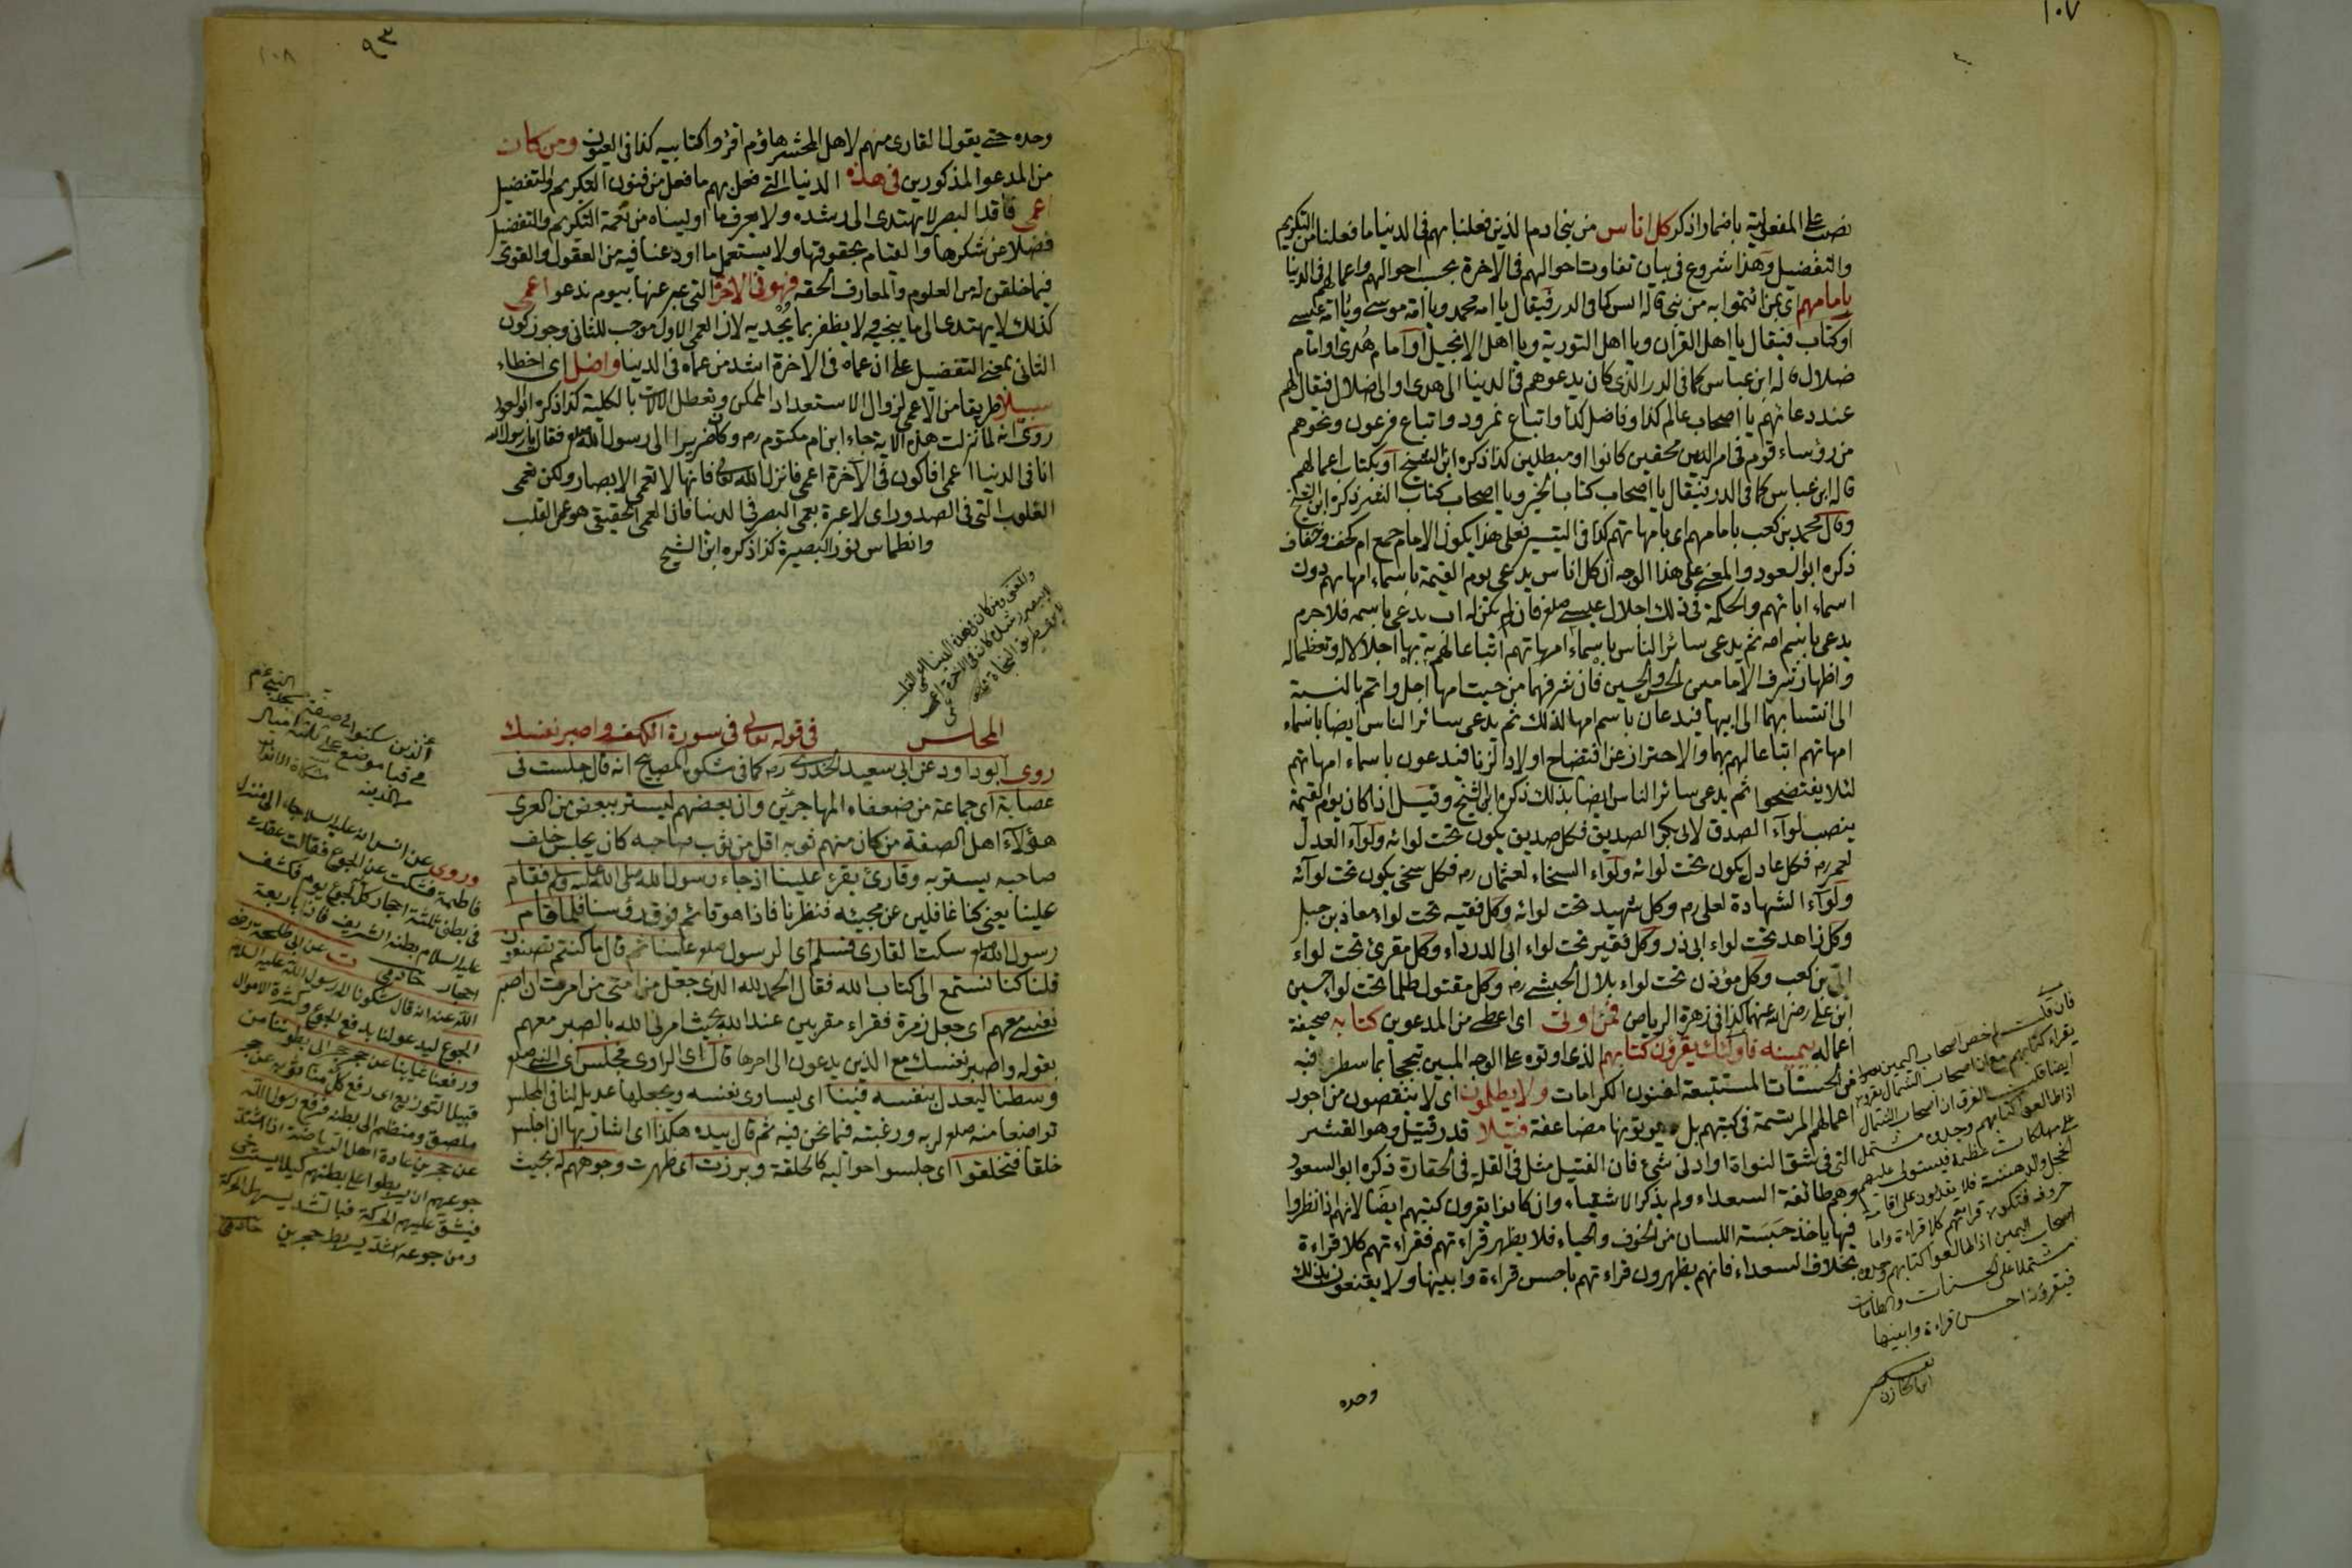 ١٠٧
نصب على المفعولية باضمار اذكر كل اناس من بني ادم الذين فعلنا بهم في الدنيا ما فعلنا من التكريم
والتفضيل وهذا شروع في بيان تفاوت احوالهم في الاخرة بحسب احوالهم واعمالهم في الدنيا
بامامهم اي بمن ائتموا به من نبي قاله انس كما في الدر فيقال يا امة محمد ويا امة موسى ويا امة عيسى
او كتاب فيقال يا اهل القران ويا اهل التورية ويا اهل الانجيل او امام هدى او امام
ضلال قاله ابن عباس كما في الدر الذي كان يدعوهم في الدنيا الى هدى او الى ضلال فيقال لهم
عند دعائهم يا اصحاب عالم كذا وفاضل كذا واتباع نمرود واتباع فرعون ونحوهم
من رؤساء قوم في امر الدين محقين كانوا او مبطلين كذا ذكره ابن الشيخ او بكتاب اعمالهم
قاله ابن عباس كما في الدر فيقال يا اصحاب كتاب الخير ويا اصحاب كتاب الشر ذكره ابن الشيخ
وقال محمد بن كعب بامامهم اي بامهاتهم كذا في التيسير فعلى هذا يكون الامام جمع ام كخف وخفاف
ذكره ابو السعود والمعنى على هذا الوجه ان كل اناس يدعى يوم القيمة باسماء امهاتهم دون
اسماء ابائهم والحكمة في ذلك اجلال عيسى صلعم فان لم يكن له اب يدعى باسمه فلا جرم
يدعى باسم امه ثم يدعى سائر الناس باسماء امهاتهم اتباعا لهم به بها اجلالا له وتعظيما له
واظهار شرف الامامين الحسن والحسين فان شرفهما من حيث امهما اجل واتم بالنسبة
الى انتسابهما الى ابيهما فيدعان باسم امهما لذلك ثم يدعى سائر الناس ايضا باسماء
امهاتهم اتباعا لهم بهما والاحتراز عن افتضاح اولاد الزنا فيدعون باسماء امهاتهم
لئلا يفتضحوا ثم يدعى سائر الناس ايضا بذلك ذكره ابن الشيخ وقيل اذا كان يوم القيمة
ينصب لواء الصدق لابي بكر الصديق فكل صديق يكون تحت لوائه ولواء العدل
لعمر رم فكل عادل يكون تحت لوائه ولواء السخاء لعثمان رم فكل سخي يكون تحت لوائه
ولواء الشهادة لعلى رم وكل شهيد تحت لوائه وكل فقيه تحت لواء معاذ بن جبل
وكل زاهد تحت لواء ابي ذر وكل فقير تحت لواء ابي الدرداء وكل مقرئ تحت لواء
ابي بن كعب وكل مؤذن تحت لواء بلال الحبشي رم وكل مقتول ظلما تحت لواء حسين
ابن علي رضي الله عنهما كذا في زهرة الرياض فمن اوتى اي اعطي من المدعوين كتابه صحيفة
اعماله بيمينه فاولئك يقرؤن كتابهم الذي اوتوه على الوجه المبين تبجحا بما سطر فيه
من الحسنات المستتبعة لفنون الكرامات ولا يظلمون اي لا ينقصون من اجور
اعمالهم المرتسمة في كتبهم بل يؤتونها مضاعفة فتيلا قدر فتيل وهو القشر
التي في شق النواة او ادنى شئ فان الفتيل مثل في القلة في الحقارة ذكره ابو السعود
وهم طائفة السعداء ولم يذكر الاشقياء وان كانوا يقرون كتبهم ايضا لانهم اذا نظروا
فيها ياخذ حبسة اللسان من الخوف والحياء فلا يظهر قراءتهم فقراءتهم كلا قراءة
بخلاف السعداء فانهم يظهرون قراءتهم باحسن قراءة وابينها ولا يقنعون بذلك
وحده
فان قلت لم خص اصحاب اليمين
يقراء كتابهم مع ان اصحاب الشمال يقرؤن
ايضا قلت الفرق ان اصحاب الشمال
اذا طالعوا كتابهم وجدوه مشتمل
على مهلكات عظيمة فيستولى عليهم
الخجل والدهشة فلا يقدرون على اقامة
حروفه فتكون قراءتهم كلا قراءة واما
اصحاب اليمين اذا طالعوا كتابهم وجدوه
مشتملا على الحسنات والطاعات
فيقرؤنه احسن قراءة وابينها
٩٣
١٠٨
وحده حتى يقول القارى منهم لاهل المحشر هاؤم اقرؤا كتابيه كذا في العيون ومن كان
من المدعو المذكورين في هذه الدنيا التي فعل بهم ما فعل من فنون التكريم والتفضيل
اعمى فاقد البصر لا يهتدى الى رشده ولا يعرف ما اوليناه من نعمة التكريم والتفضيل
فضلا عن شكرها والقيام بحقوقها ولا يستعمل ما اودعنا فيه من العقول والقوى
فيما خلقن له من العلوم والمعارف الحقه فهو في الاخرة التي عبر عنها بيوم ندعو اعمى
كذلك لا يهتدى الى ما ينجيه ولا يظفر بما يجديه لان العمى الاول موجب للثاني وجوز كون
الثاني بمعنى التفضيل على ان عماه في الاخرة اشد من عماه في الدنيا واضل اي اخطاء
سبيلا طريقا من الاعمى لزوال الاستعداد الممكن وتعطل الالات بالكلية كذا ذكره ابو السعود
روى انه لما نزلت هذه الاية جاء ابن ام مكتوم رم وكان ضريرا الى رسول الله صلعم فقال يا رسول الله
انا في الدنيا اعمى افاكون في الاخرة اعمى فانزل الله تعالى فانها لا تعمى الابصار ولكن تعمى
القلوب التي في الصدور اي لا عبرة بعمى البصر في الدنيا فان العمى الحقيقي هو عمى القلب
وانطماس نور البصيرة كذا ذكره ابن الشيخ
والمعنى ومن كان في هذه الدنيا اعمى القلب
لا يبصر رشده كان في الاخرة اعمى
المجلس في قوله تعالى في سورة الكهف واصبر نفسك
روى ابو داود عن ابي سعيد الخدرى رم كما في مشكوة المصابيح انه قال جلست في
عصابة اي جماعة من ضعفاء المهاجرين وان بعضهم ليستر ببعض من العرى
هؤلاء اهل الصفة من كان منهم ثوبه اقل من ثوب صاحبه كان يجلس خلف
صاحبه يستتر به وقارئ يقرئ علينا اذ جاء رسول الله صلى الله عليه وسلم فقام
علينا يعني كنا غافلين عن مجيئه فنظرنا فاذا هو قائم فوق رؤسنا فلما قام
رسول الله صلعم سكت القارى فسلم اي الرسول صلعم علينا ثم قال ما كنتم تصنعون
قلنا كنا نستمع الى كتاب الله فقال الحمد لله الذي جعل من امتى من امرت ان اصبر
نفسى معهم اي جعل زمرة فقراء مقربين عند الله بحيث امرني الله بالصبر معهم
بقوله واصبر نفسك مع الذين يدعون الى اخرها قال اي الراوى فجلس اي النبي صلعم
وسطنا ليعدل بنفسه فينا اي ليساوى نفسه ويجعلها عديلة لنا في المجلس
تواضعا منه صلعم لربه ورغبته فيما نحن فيه ثم قال بيده هكذا اي اشار بها ان اجلس
خلقا فتحلقوا اي جلسوا حواليه كالحلقة وبرزت اي ظهرت وجوههم له بحيث
الذين سكنوا في صفة مسجد النبي عم
في قبا موضع على ثلثة اميال
من المدينه مشكاة الانوار
وروى عن انس انه عليه السلام جاء الى منزل
فاطمة فشكت عن الجوع فقالت عقدت
في بطني ثلثة احجار كل لجوع يوم فكشف
عليه السلام بطنه الشريف فاذا باربعة
احجار خادمي ت عن ابي طلحة رضى
الله عنه انه قال شكونا الى رسول الله عليه السلام
الجوع ليدعو لنا بدفع الجوع وكثرة الاموال
ورفعنا ثيابنا عن حجر حجر الى بطوننا من
قبيل التوزيع اي رفع كل منا ثوبه عن حجر
ملصق ومنظم الى بطنه فرفع رسول الله
عن حجرين عادة اهل الرياضة اذا اشتد
جوعهم ان يربطوا على بطنهم كيلا يسترخى
فيشق عليهم الحركة فبالشد يسهل الحركة
ومن جوعه اشد يربط حجرين خادمي